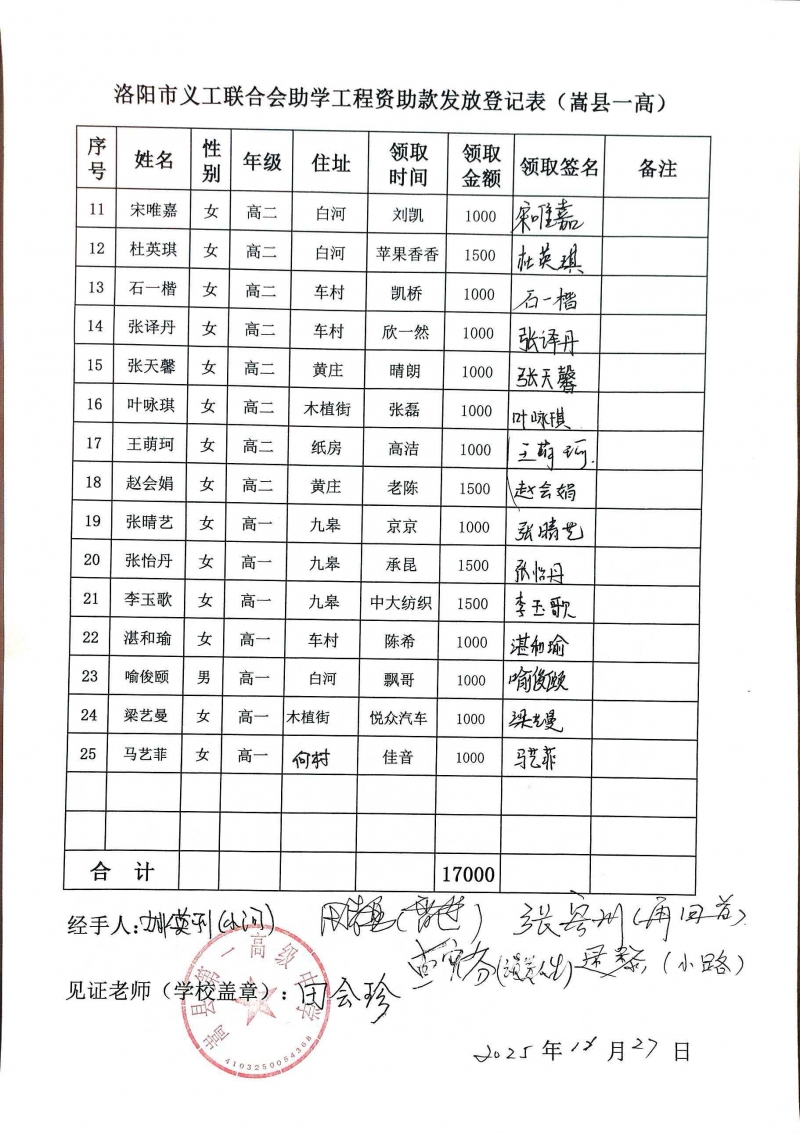 洛阳市义工联合会助学工程资助款发放登记表（嵩县一高）
序号 姓名 性别 年级 住址 领取时间 领取金额 领取签名 备注
11 宋唯嘉 女 高二 白河 刘凯 1000 宋唯嘉
12 杜英琪 女 高二 白河 苹果香香 1500 杜英琪
13 石一楷 女 高二 车村 凯桥 1000 石一楷
14 张译丹 女 高二 车村 欣一然 1000 张译丹
15 张天馨 女 高二 黄庄 晴朗 1000 张天馨
16 叶咏琪 女 高二 木植街 张磊 1000 叶咏琪
17 王萌珂 女 高二 纸房 高洁 1000 王萌珂
18 赵会娟 女 高二 黄庄 老陈 1500 赵会娟
19 张晴艺 女 高一 九皋 京京 1000 张晴艺
20 张怡丹 女 高一 九皋 承昆 1500 张怡丹
21 李玉歌 女 高一 九皋 中大纺织 1500 李玉歌
22 湛和瑜 女 高一 车村 陈希 1000 湛和瑜
23 喻俊颐 男 高一 白河 飘哥 1000 喻俊颐
24 梁艺曼 女 高一 木植街 悦众汽车 1000 梁艺曼
25 马艺菲 女 高一 何村 佳音 1000 马艺菲
合计 17000
经手人：
（小路）
见证老师（学校盖章）：田会珍
嵩县第一高级中学
4103250054368
2025年12月27日